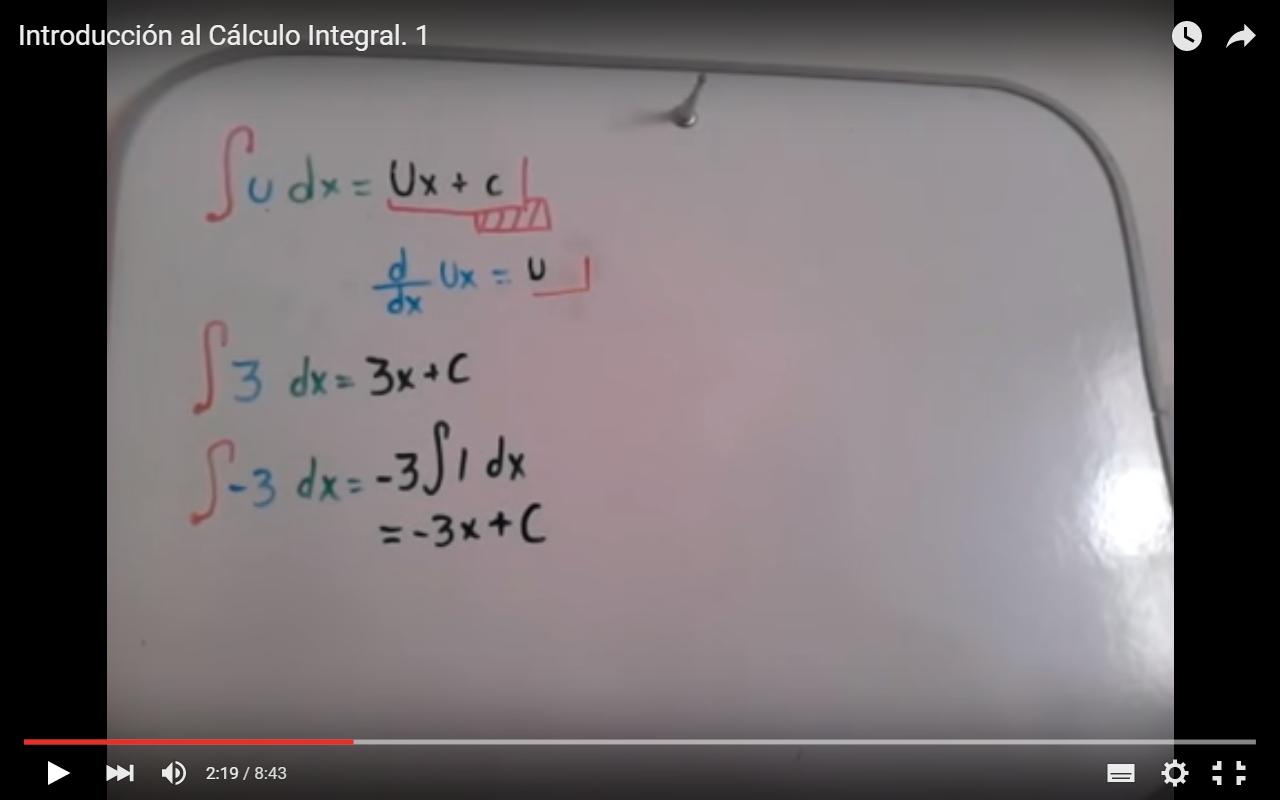 Introducción al Cálculo Integral. 1
∫u dx = Ux + c
d/dx Ux = U
∫3 dx = 3x + C
∫-3 dx = -3∫1 dx
= -3x + C
2:19 / 8:43